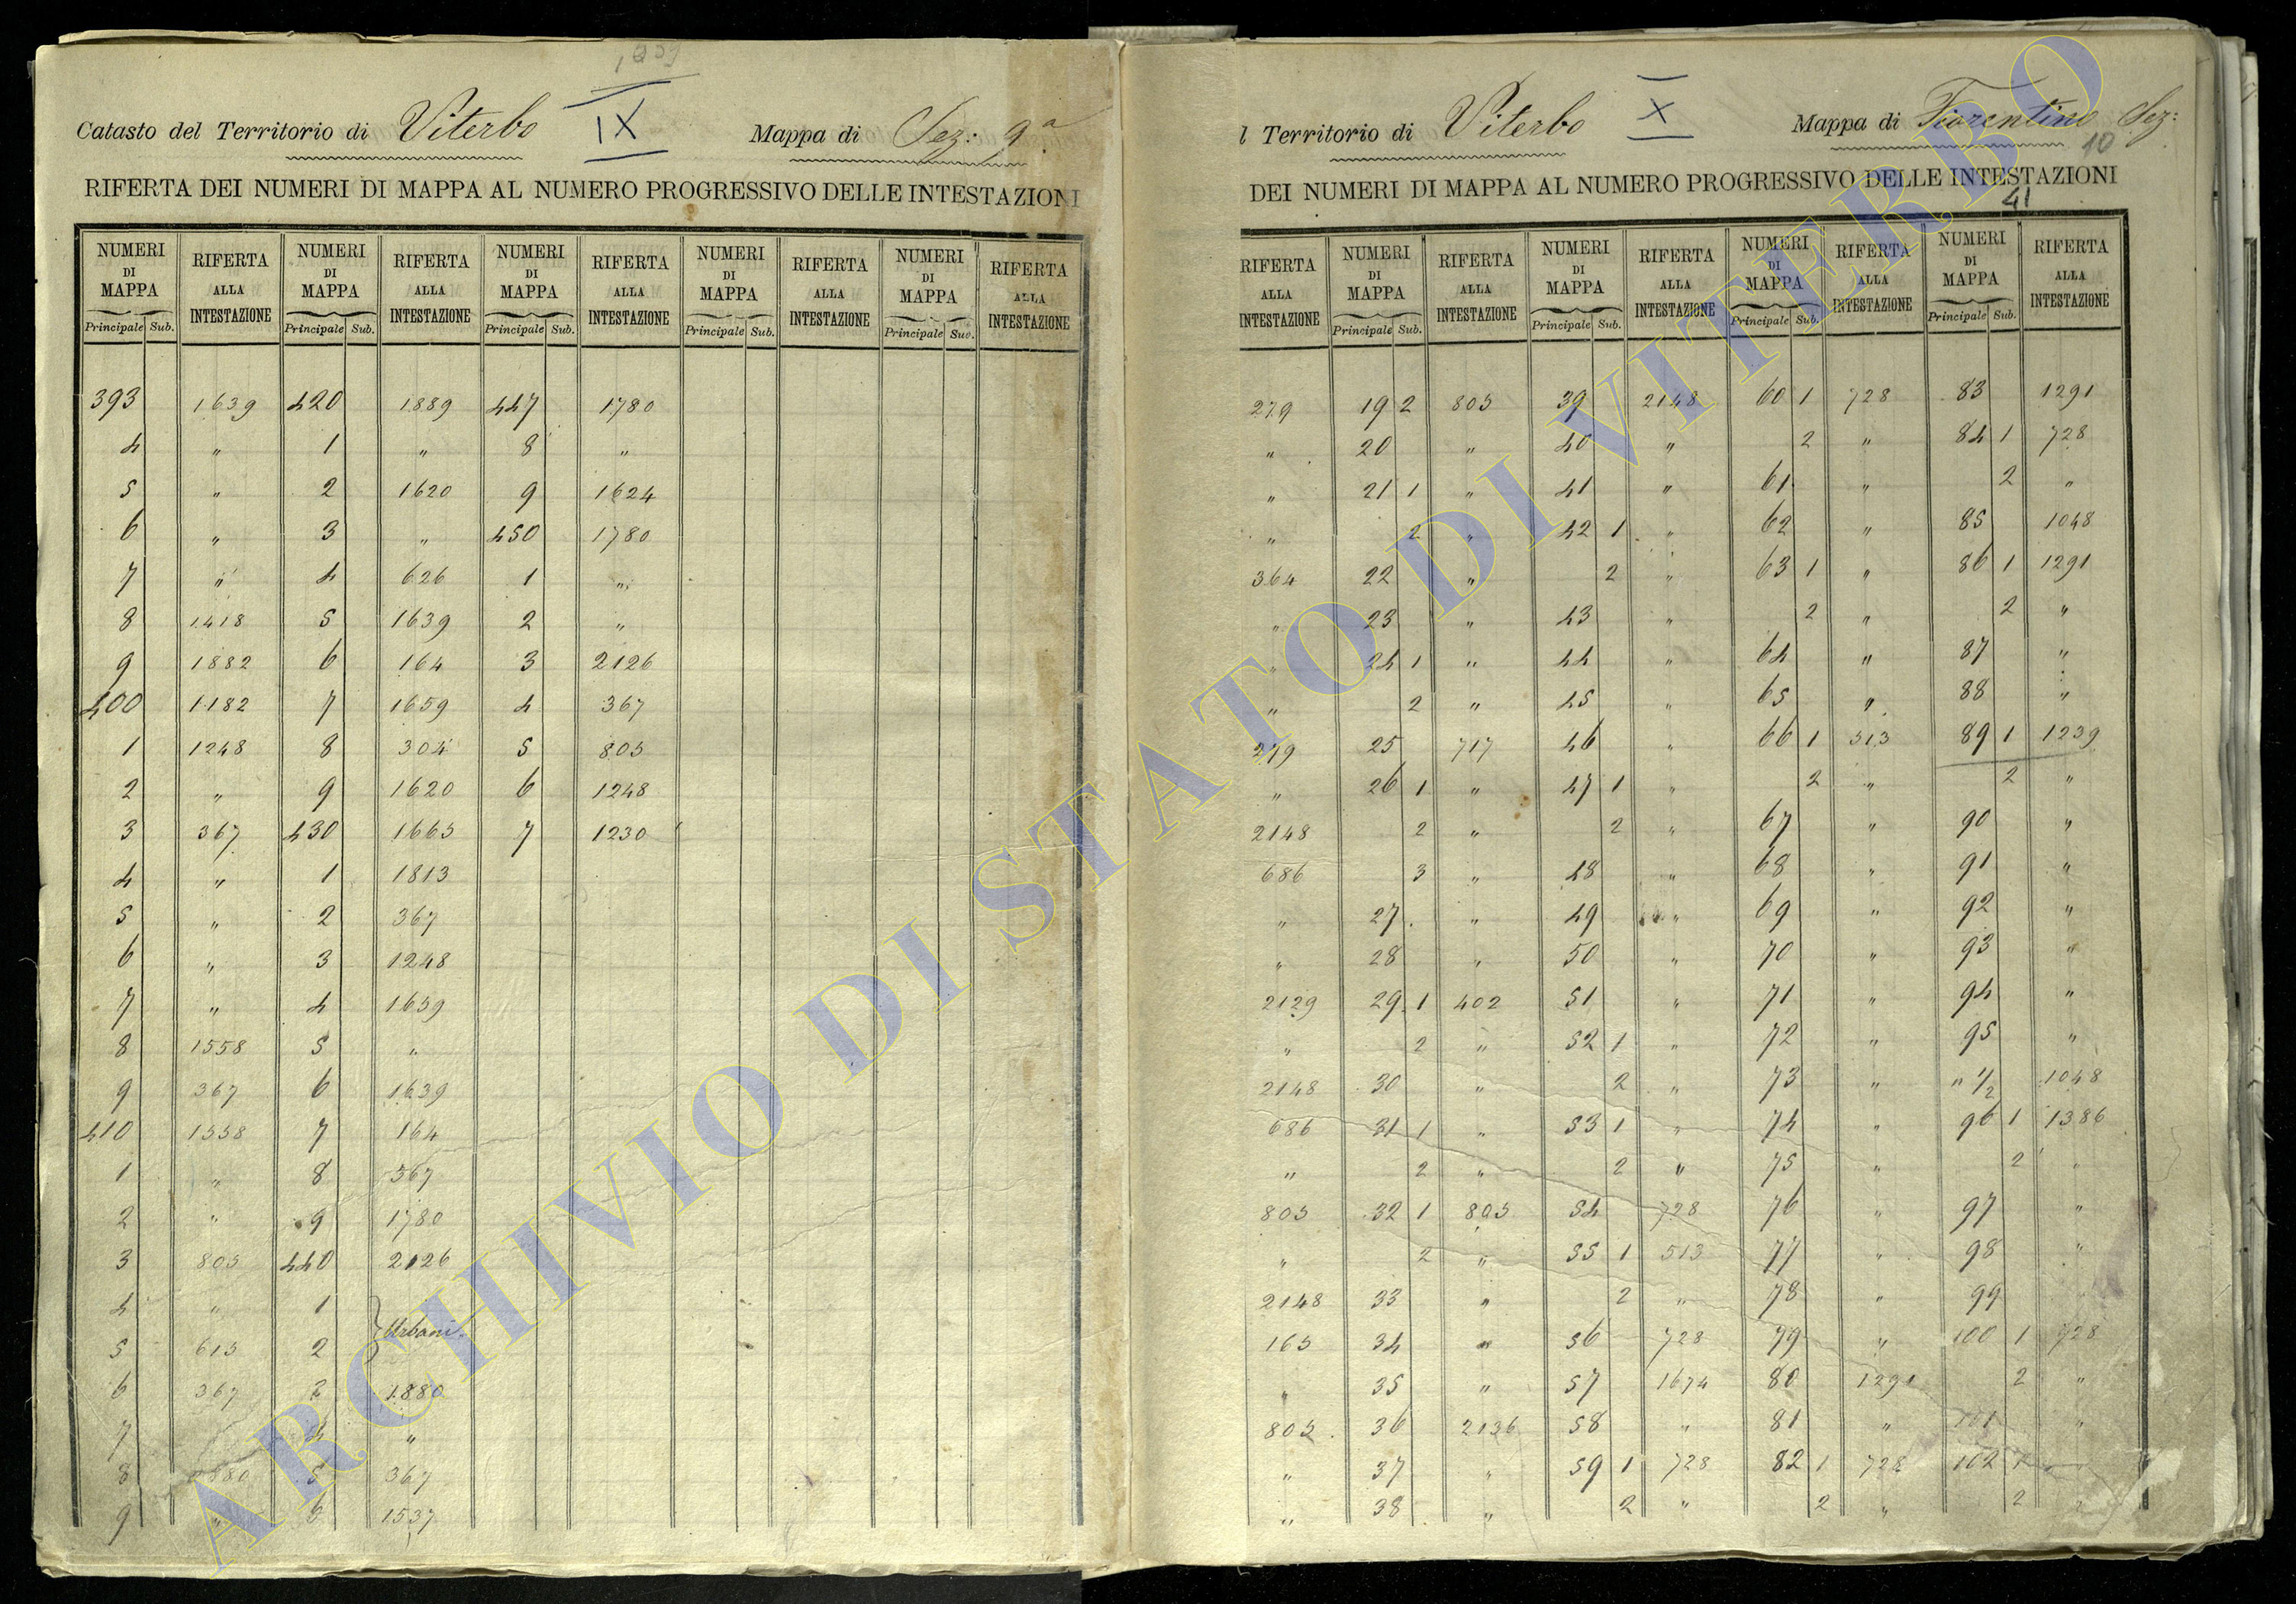 Catasto del Territorio di Viterbo IX Mappa di Sez: 9ª
RIFERTA DEI NUMERI DI MAPPA AL NUMERO PROGRESSIVO DELLE INTESTAZIONI
NUMERI DI MAPPA RIFERTA ALLA INTESTAZIONE NUMERI DI MAPPA RIFERTA ALLA INTESTAZIONE NUMERI DI MAPPA RIFERTA ALLA INTESTAZIONE NUMERI DI MAPPA RIFERTA ALLA INTESTAZIONE NUMERI DI MAPPA RIFERTA ALLA INTESTAZIONE
Principale Sub. Principale Sub. Principale Sub. Principale Sub. Principale Sub.
393 1639 420 1889 447 1780
4 " 1 " 8 "
5 " 2 1620 9 1624
6 " 3 " 450 1780
7 " 4 626 1 "
8 1418 5 1639 2 "
9 1882 6 164 3 2126
400 1182 7 1659 4 367
1 1248 8 304 5 805
2 " 9 1620 6 1248
3 367 430 1665 7 1230
4 " 1 1813
5 " 2 367
6 " 3 1248
7 " 4 1639
8 1558 5 "
9 367 6 1639
410 1558 7 164
1 " 8 367
2 " 9 1780
3 805 440 2126
4 " 1
Urbani
5 615 2
6 367 3 1880
7 4 "
8 1880 5 367
9 " 6 1537
l Territorio di Viterbo X Mappa di Fiorentino Sez:
10
DEI NUMERI DI MAPPA AL NUMERO PROGRESSIVO DELLE INTESTAZIONI
41
RIFERTA ALLA INTESTAZIONE NUMERI DI MAPPA RIFERTA ALLA INTESTAZIONE NUMERI DI MAPPA RIFERTA ALLA INTESTAZIONE NUMERI DI MAPPA RIFERTA ALLA INTESTAZIONE NUMERI DI MAPPA RIFERTA ALLA INTESTAZIONE
Principale Sub. Principale Sub. Principale Sub. Principale Sub.
279 19 2 805 39 2148 60 1 728 83 1291
" 20 " 40 " 2 " 84 1 728
" 21 1 " 41 " 61 " 2 "
" 2 " 42 1 " 62 " 85 1048
364 22 " 2 " 63 1 " 86 1 1291
" 23 " 43 " 2 " 2 "
" 24 1 " 44 " 64 " 87 "
" 2 " 45 " 65 " 88 "
279 25 717 46 " 66 1 513 89 1 1239
" 26 1 " 47 1 " 2 " 2 "
2148 2 " 2 " 67 " 90 "
686 3 " 48 " 68 " 91 "
" 27 " 49 " 69 " 92 "
" 28 " 50 " 70 " 93 "
2129 29 1 402 51 " 71 " 94 "
" 2 " 52 1 " 72 " 95 "
2148 30 " 2 " 73 " " 1/2 1048
686 31 1 " 53 1 " 74 " 96 1 1386
" 2 " 2 " 75 " 2 "
805 32 1 805 54 728 76 " 97 "
" 2 " 55 1 513 77 " 98 "
2148 33 " 2 " 78 " 99
165 34 " 56 728 79 " 100 1 728
" 35 " 57 1674 80 1291 2 "
805 36 2136 58 " 81 " 101 "
" 37 " 59 1 728 82 1 728 102 1
" 38 " 2 " 2 " 2 "
ARCHIVIO DI STATO DI VITERBO